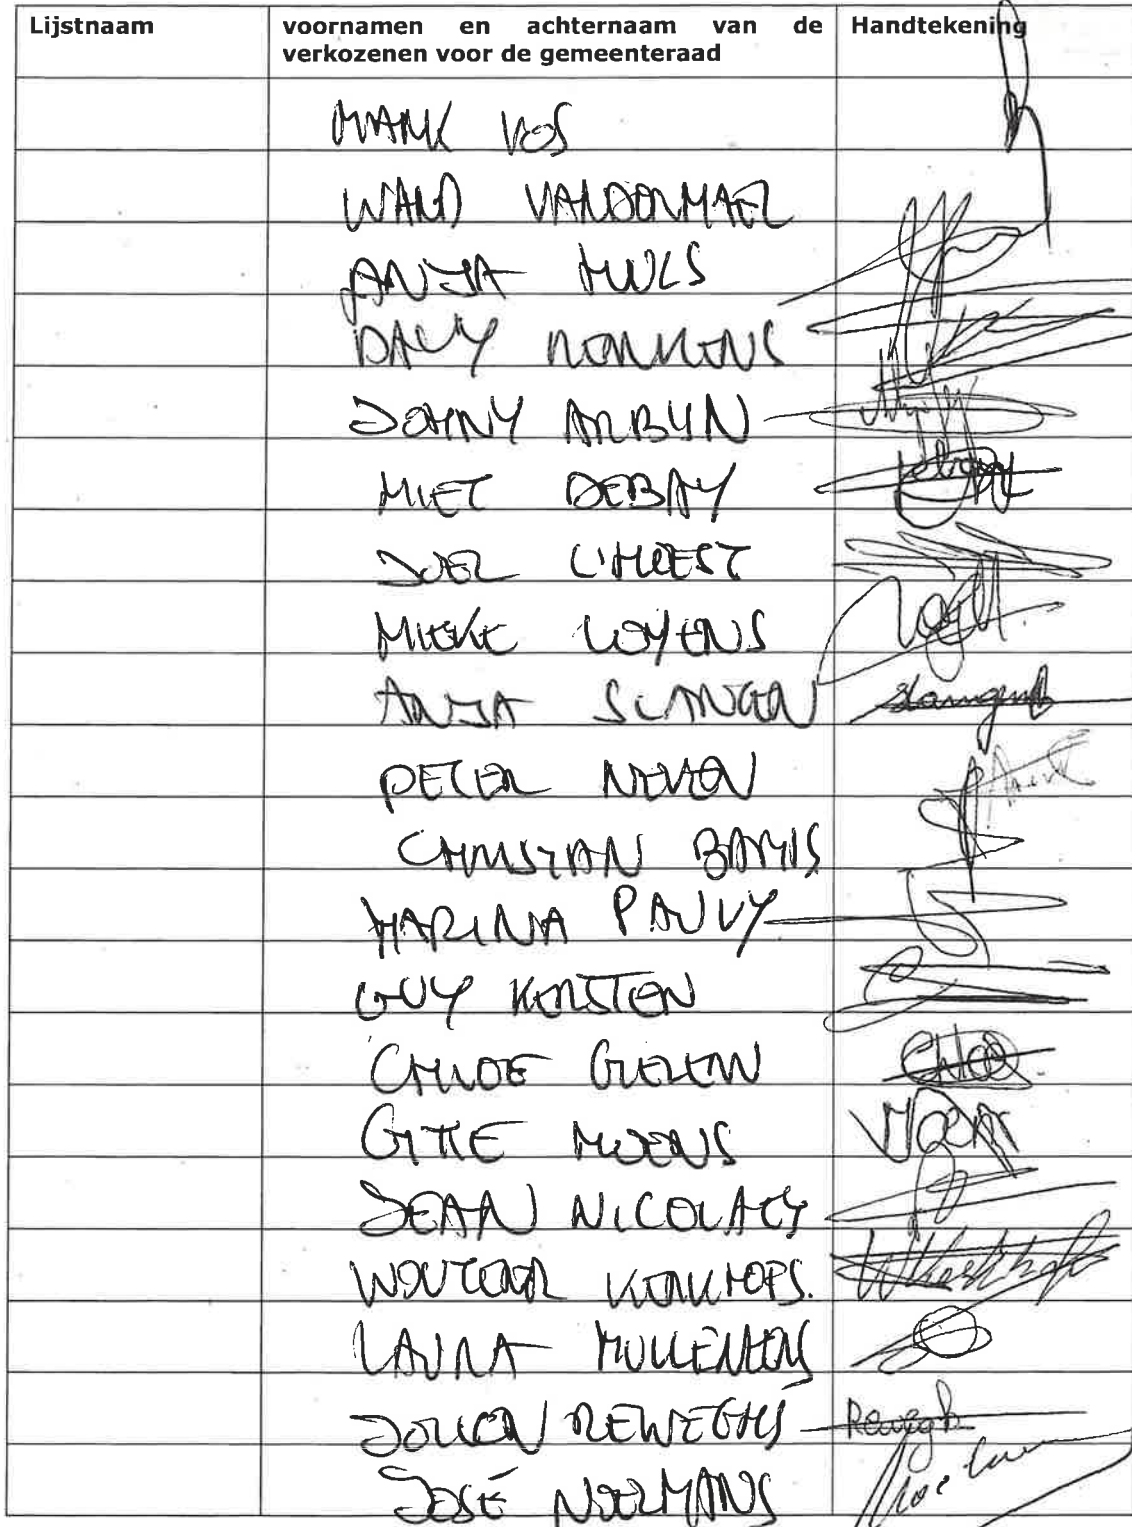 Lijstnaam
voornamen en achternaam van de
verkozenen voor de gemeenteraad
Handtekening
MARK VOS
WARD VANDORMAEL
ANJA MULS
DAVY RENKENS
JOHNY ARBYN
MIET DEBAY
JOEL L'HOEST
MIEKE LOYENS
ANJA SLANGEN
slangen
PETER NEVEN
CHRISTIAN BAMIS
MARINA PAULY
GUY KERSTEN
CHLOE GIELEN
Chloé
GITTE MOENS
JEAN NICOLAEY
WOUTER KERKHOFS.
LAURA MULLENERS
JOLIEN REWEGHS
Reweghs
JOSÉ NOELMANS